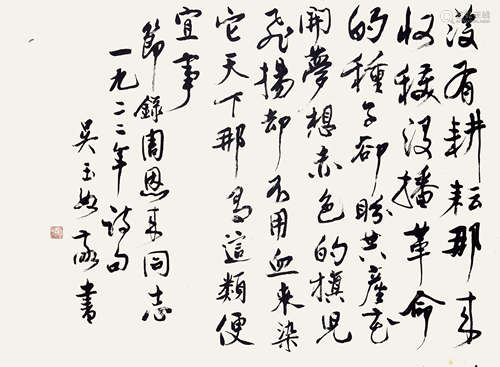 没有耕耘那来
收穫没播革命
的種子卻盼共產花
開夢想赤色的旗兒
飛揚卻不用血來染
它天下那有這類便
宜事
節錄周恩来同志
一九二二年詩句
吴玉如敬書